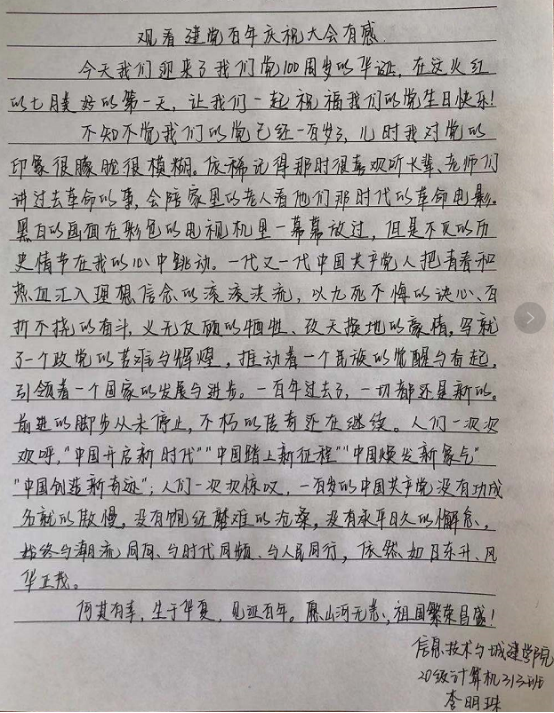 观看建党百年庆祝大会有感.
今天我们迎来了我们党100周岁的华诞,在这火红
的七月美好的第一天,让我们一起祝福我们的党生日快乐!
不知不觉我们的党已经一百岁了,儿时我对党的
印象很朦胧很模糊。依稀记得那时很喜欢听长辈、老师们
讲过去革命的事,会陪家里的老人看他们那时代的革命电影。
黑白的画面在彩色的电视机里一幕幕放过,但是不灭的历
史情节在我的心中跳动。一代又一代中国共产党人把青春和
热血汇入理想信念的滚滚洪流,以九死不悔的决心、百
折不挠的奋斗、义无反顾的牺牲、改天换地的豪情,写就
了一个政党的苦难与辉煌,推动着一个民族的觉醒与奋起,
引领着一个国家的发展与进步。一百年过去了,一切都还是新的。
前进的脚步从未停止,不朽的传奇还在继续。人们一次次
欢呼,"中国开启新时代""中国踏上新征程""中国焕发新气象"
"中国创造新奇迹";人们一次次惊叹,一百岁的中国共产党没有功成
名就的傲慢,没有饱经磨难的沧桑,没有承平日久的懈怠,
始终与潮流同向、与时代同频、与人民同行,依然如日东升、风
华正茂。
何其有幸,生于华夏,见证百年。愿山河无恙,祖国繁荣昌盛!
信息技术与城建学院
20级计算机313班
李明珠